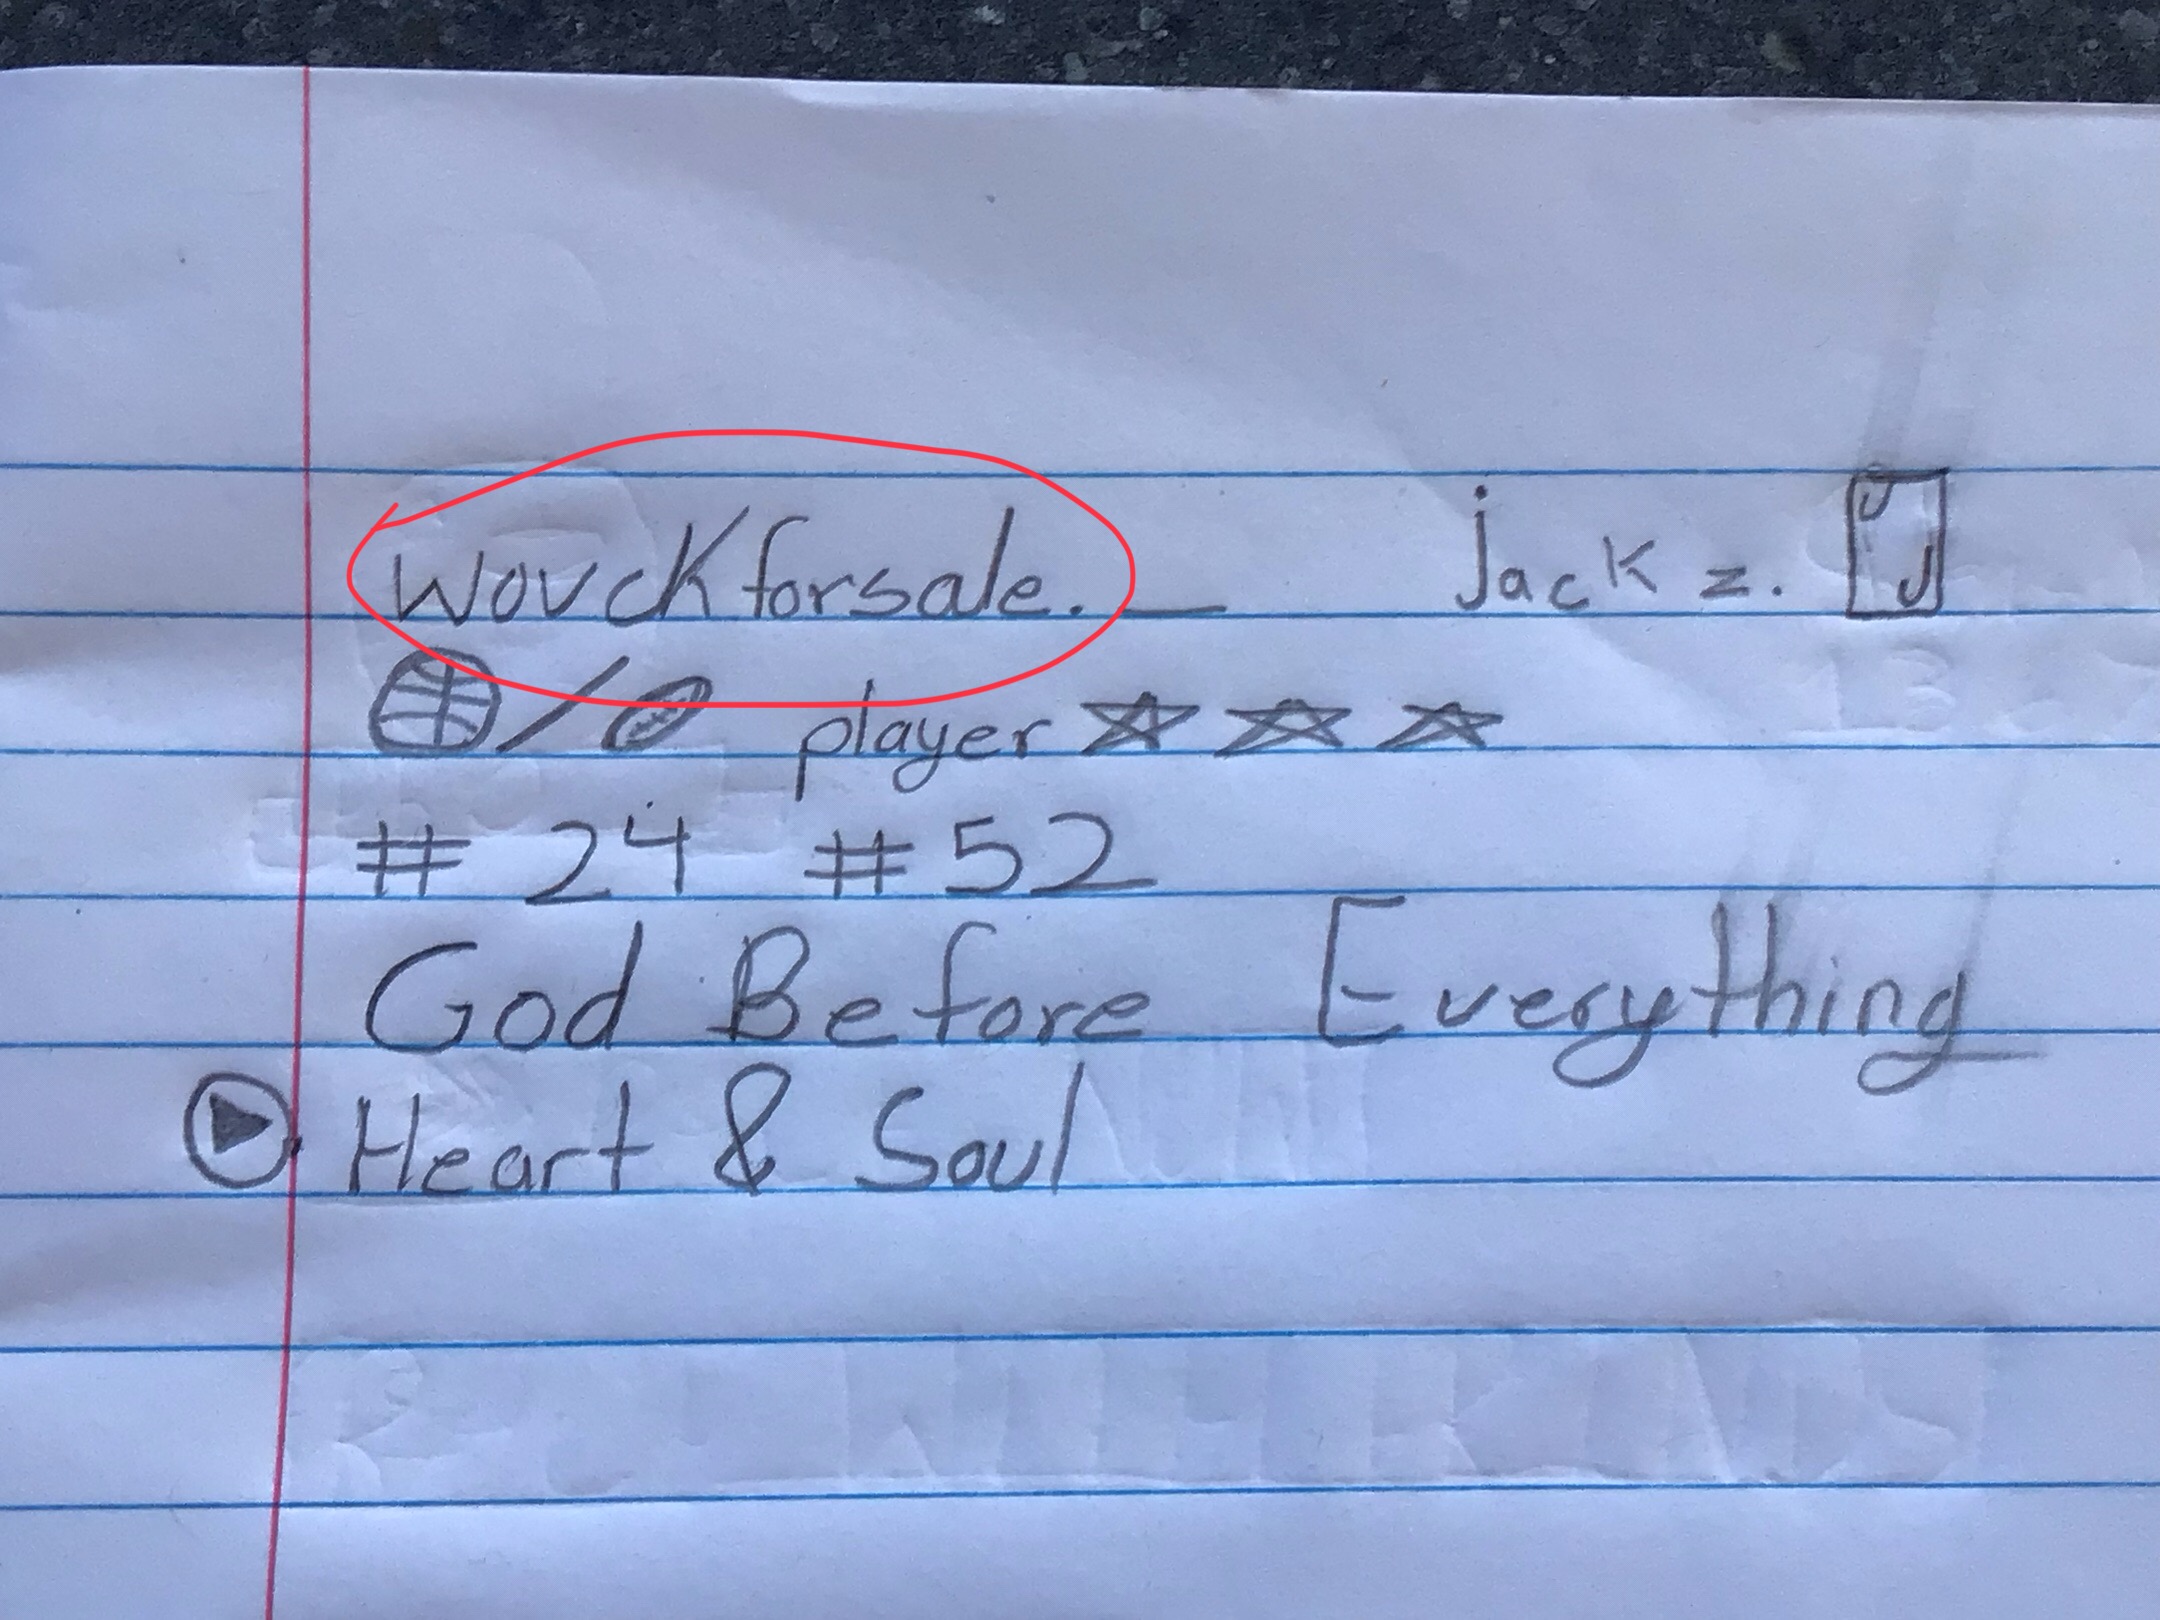 wovckforsale._ jack z. J J
/ player
# 24 # 52
God Before Everything
Heart & Soul